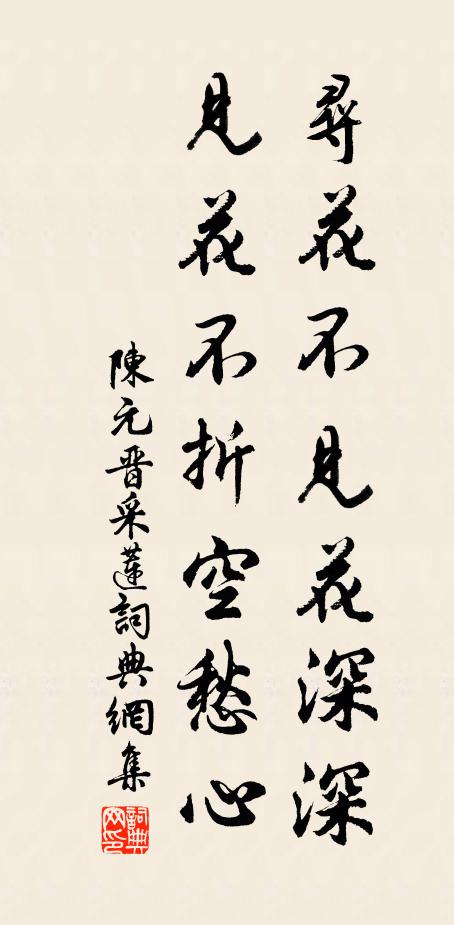 尋花不見花深深
見花不折空愁心
陳元晋采蓮詞典網集
詞典網印